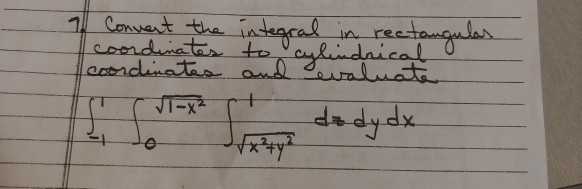 7. Convert the integral in rectangular
coordinates to cylindrical
coordinates and evaluate
∫_{-1}^{1} ∫_{0}^{√(1-x²)} ∫_{√(x²+y²)}^{1} dz dy dx